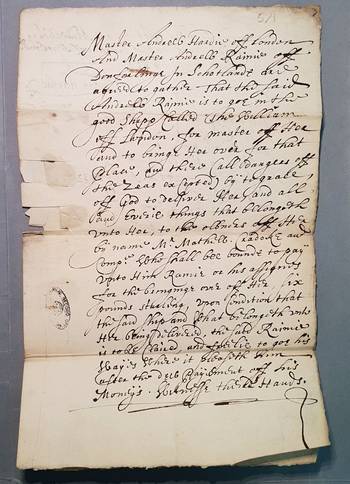 571
Master Andrew Hardie off London
And Master Andrew Ramie off
in Schotlande are
agreed to gather That the said
Andrew Ramie is to goe in the
good Shepp Called The William
off London, for master off Her
and to bringe Her over for that
Place, and there (all daungers off
the Zeas excepted) by the grace
off God to deliver Her and all
and everie things that belongeth
unto Her, to the owners off Her
by name Mr. Mathew and
Comp: Who shall bee bounde to pay
unto Him Ramie or his assignes
for the bringinge over off Her Six
pounds sterling, upon Condition that
the said ship and what belongeth unto
Her beeing delivered, the said Ramie
is to be and to goe his
Wayes Where it pleaseth Him
after the deu Payement off his
Moneys. Witnesse there Hands.